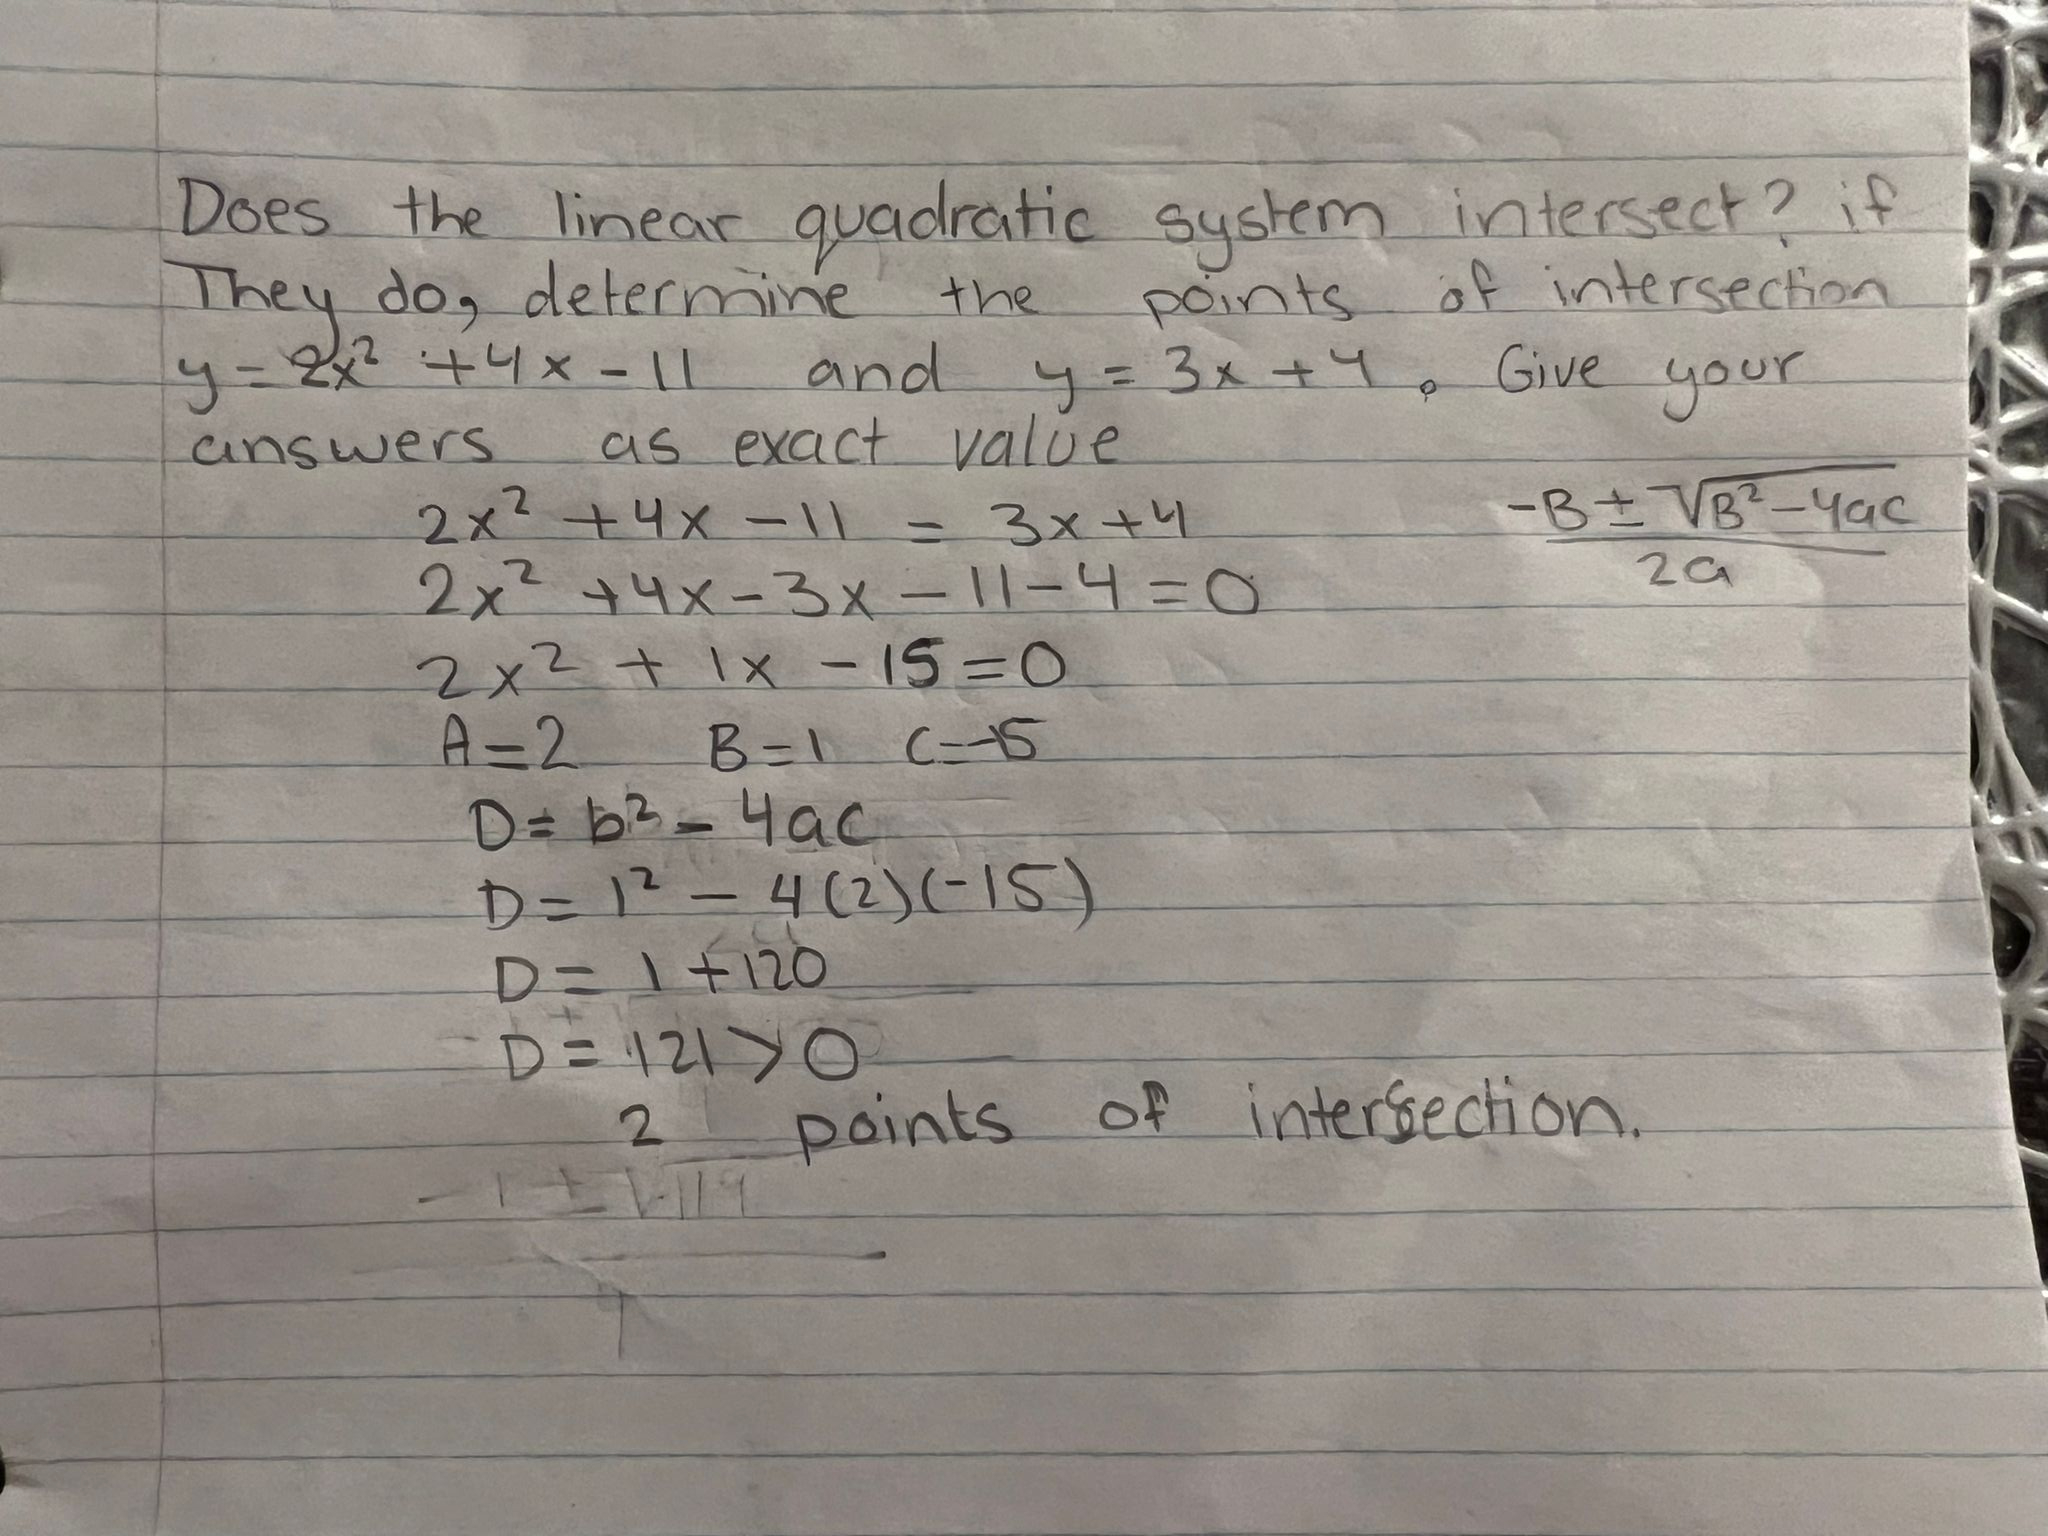 Does the linear quadratic system intersect? if
They do, determine the points of intersection
y = 2x² + 4x - 11 and y = 3x + 4. Give your
answers as exact value
2x² + 4x - 11 = 3x + 4
-B ± √B² - 4ac
2a
2x² + 4x - 3x - 11 - 4 = 0
2x² + 1x - 15 = 0
A = 2 B = 1 C = -15
D = b² - 4ac
D = 1² - 4(2)(-15)
D = 1 + 120
D = 121 > 0
2 points of intersection.